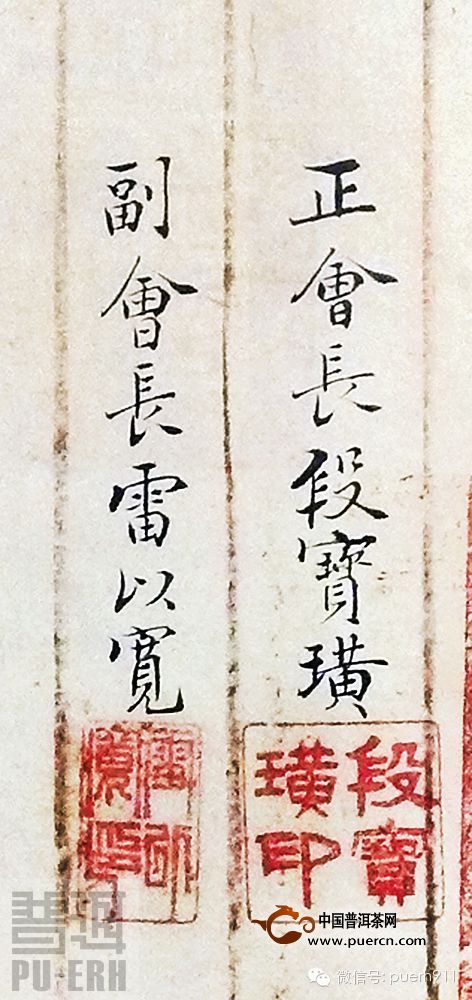 正會長段寶璜
段寶
璜印
副會長雷以寬
普洱
PU-ERH
中国普洱茶网
www.puercn.com
微信号: